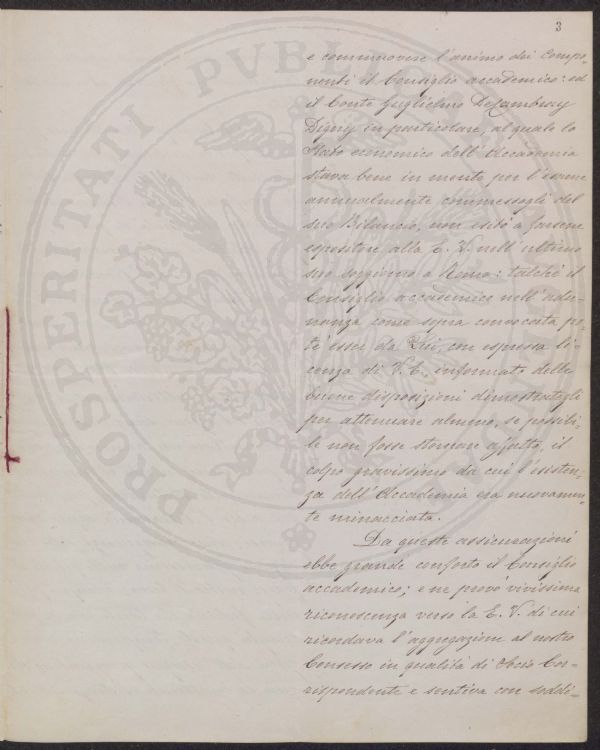 3
e commuovere l'animo dei Compo-
nenti il Consiglio accademico: ed
il Conte Guglielmo De Cambray
Digny in particolare, al quale lo
Stato economico dell'Accademia
stava bene in mente per l'esame
annualmente commessogli del
suo Bilancio, non esitò a farsene
espositore alla E. V. nell'ultimo
suo soggiorno a Roma: talchè il
Consiglio accademico nell'adu-
nanza come sopra convocata po-
tè esser da Lui, con espressa li-
cenza di V. E. informato delle
buone disposizioni dimostrategli
per attenuare almeno, se possibi-
le non fosse stornare affatto, il
colpo gravissimo da cui l'esisten-
za dell'Accademia era nuovamen-
te minacciata.
Da queste assicurazioni
ebbe grande conforto il Consiglio
accademico; e ne provò vivissima
riconoscenza verso la E. V. di cui
ricordava l'aggregazione al nostro
Consesso in qualità di Socio Cor-
rispondente e sentiva con soddi-
PROSPERITATI PVBLI